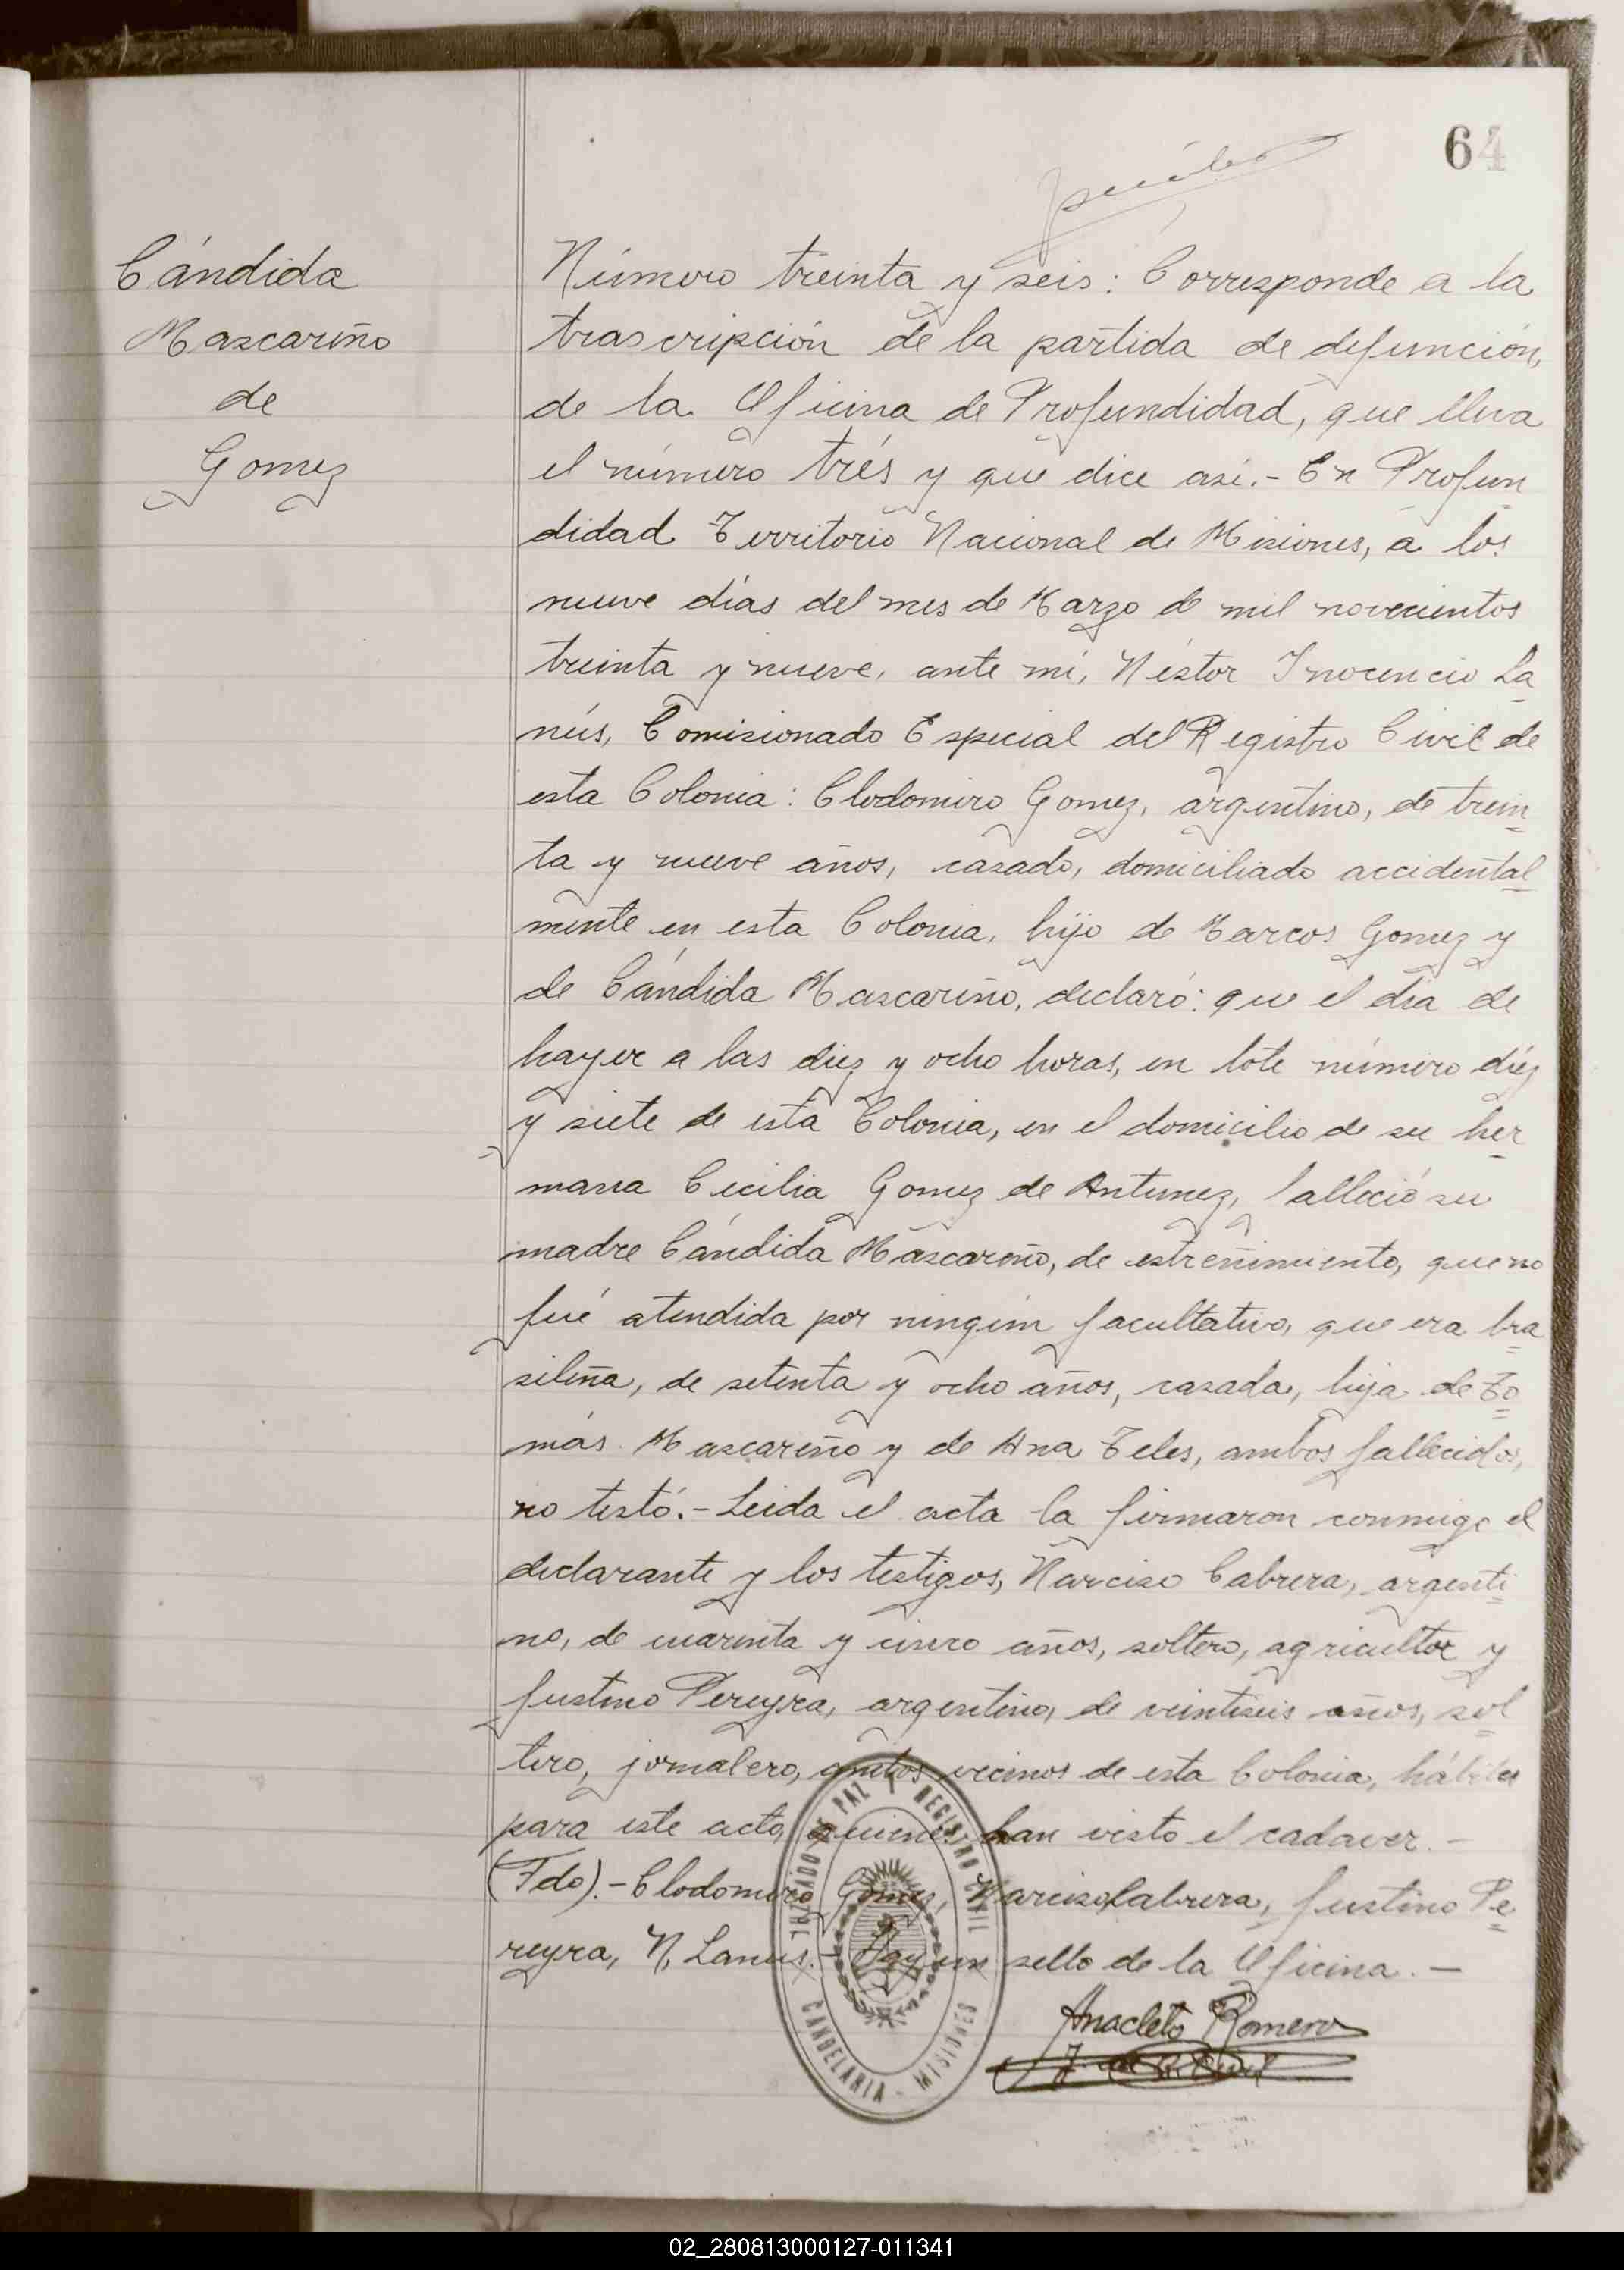 64
Cándida
Mascariño
de
Gomez
Número treinta y seis: Corresponde a la
trascripción de la partida de defunción,
de la Oficina de Profundidad, que lleva
el número trés y que dice asi.- En Profun
didad Territorio Nacional de Misiones, a los
nueve días del mes de Marzo de mil novecientos
treinta y nueve, ante mí, Néstor Inocencio La
nús, Comisionado Especial del Registro Civil de
esta Colonia: Clodomiro Gomez, argentino, de trein
ta y nueve años, casado, domiciliado accidental
mente en esta Colonia, hijo de Marcos Gomez y
de Cándida Mascariño, declaró: que el día de
hayer a las diez y ocho horas, en lote número diez
y siete de esta Colonia, en el domicilio de su her
mana Cecilia Gomez de Antunez, falleció su
madre Cándida Mascariño, de estreñimiento, que no
fué atendida por ningún facultativo, que era bra
sileña, de setenta y ocho años, casada, hija de To
más Mascariño y de Ana Teles, ambos fallecidos,
no testó.- Leida el acta la firmaron conmigo el
declarante y los testigos, Narciso Cabrera, argenti
no, de cuarenta y cinco años, soltero, agricultor y
Justino Pereyra, argentino, de veintiseis años, sol
tero, jornalero, ambos vecinos de esta Colonia, hábiles
para este acto, quienes han visto el cadaver.-
(Fdo).- Clodomiro Gomez, Narciso Cabrera, Justino Pe
reyra, N. Lanus.- Hay un sello de la Oficina.-
JUZGADO DE PAZ Y REGISTRO CIVIL
CANDELARIA - MISIONES
Anacleto Romero
02_280813000127-011341